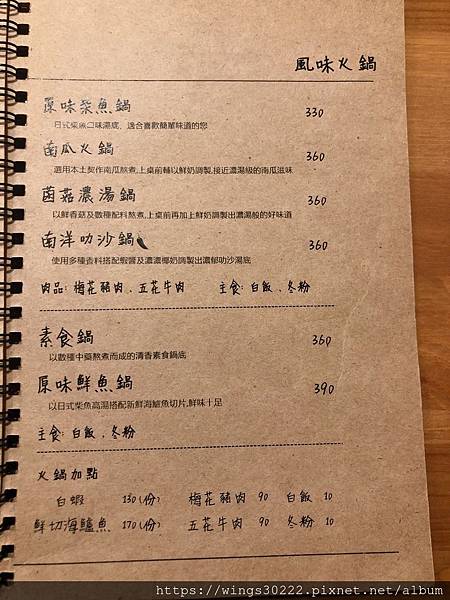 風味火鍋
原味柴魚鍋 330
日式柴魚口味湯底，適合喜歡簡單味道的您
南瓜火鍋 360
選用本土契作南瓜熬煮,上桌前輔以鮮奶調製,接近濃湯級的南瓜滋味
菌菇濃湯鍋 360
以鮮香菇及數種配料熬煮,上桌前再加上鮮奶調製出濃湯般的好味道
南洋叻沙鍋 360
使用多種香料搭配蝦醬及濃濃椰奶調製出濃郁叻沙湯底
肉品: 梅花豬肉、五花牛肉 主食: 白飯、冬粉
素食鍋 360
以數種中藥熬煮而成的清香素食鍋底
原味鮮魚鍋 390
以日式柴魚高湯搭配新鮮海鱸魚切片,鮮味十足
主食: 白飯、冬粉
火鍋加點
白蝦 130(份) 梅花豬肉 90 白飯 10
鮮切海鱸魚 170(份) 五花牛肉 90 冬粉 10
https://wings30222.pixnet.net/album